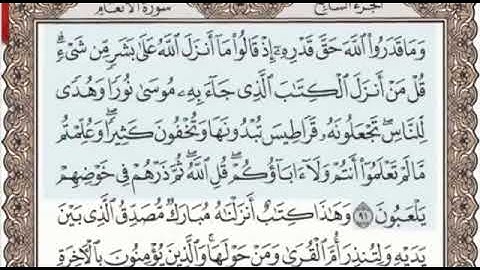 سورة الأنعام الجزء السابع
وَمَا قَدَرُوا۟ ٱللَّهَ حَقَّ قَدْرِهِۦٓ إِذْ قَالُوا۟ مَآ أَنزَلَ ٱللَّهُ عَلَىٰ بَشَرٍ مِّن شَىْءٍۗ
قُلْ مَنْ أَنزَلَ ٱلْكِتَٰبَ ٱلَّذِى جَآءَ بِهِۦ مُوسَىٰ نُورًا وَهُدًى
لِّلنَّاسِۖ تَجْعَلُونَهُۥ قَرَاطِيسَ تُبْدُونَهَا وَتُخْفُونَ كَثِيرًاۖ وَعُلِّمْتُم
مَّا لَمْ تَعْلَمُوٓا۟ أَنتُمْ وَلَآ ءَابَآؤُكُمْۖ قُلِ ٱللَّهُۖ ثُمَّ ذَرْهُمْ فِى خَوْضِهِمْ
يَلْعَبُونَ ٩١ وَهَٰذَا كِتَٰبٌ أَنزَلْنَٰهُ مُبَارَكٌ مُّصَدِّقُ ٱلَّذِى بَيْنَ
يَدَيْهِ وَلِتُنذِرَ أُمَّ ٱلْقُرَىٰ وَمَنْ حَوْلَهَاۚ وَٱلَّذِينَ يُؤْمِنُونَ بِٱلْءَاخِرَةِ